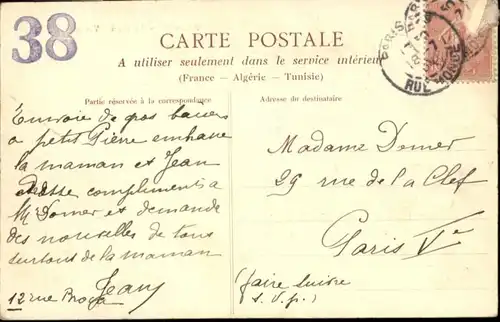 38
CARTE POSTALE
A utiliser seulement dans le service intérieur
(France - Algérie - Tunisie)
Partie réservée à la correspondance
Adresse du destinataire
PARIS
RUE MONGE
J'envoie de gros baisers
a petit Pierre embrasse
la maman et Jean
adresse compliments a
Mr Domer et demande
des nouvelles de tous
surtout de la maman
Jean
12 rue
Madame Domer
29 rue de la Clef
Paris Ve
(faire suivre
s.v.p.)